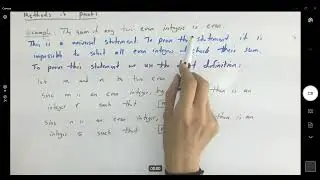 Methods of proof
Example: The sum of any two even integers is even.
This is a universal statement. To prove the statement it is
impossible to select all even integers & check their sum.
To prove this statement we use the definition:
Let m and n be two even
Since m is an even integer, by is an
integer r such that
Since n is an even integer, then is an
integer s such that
00:00